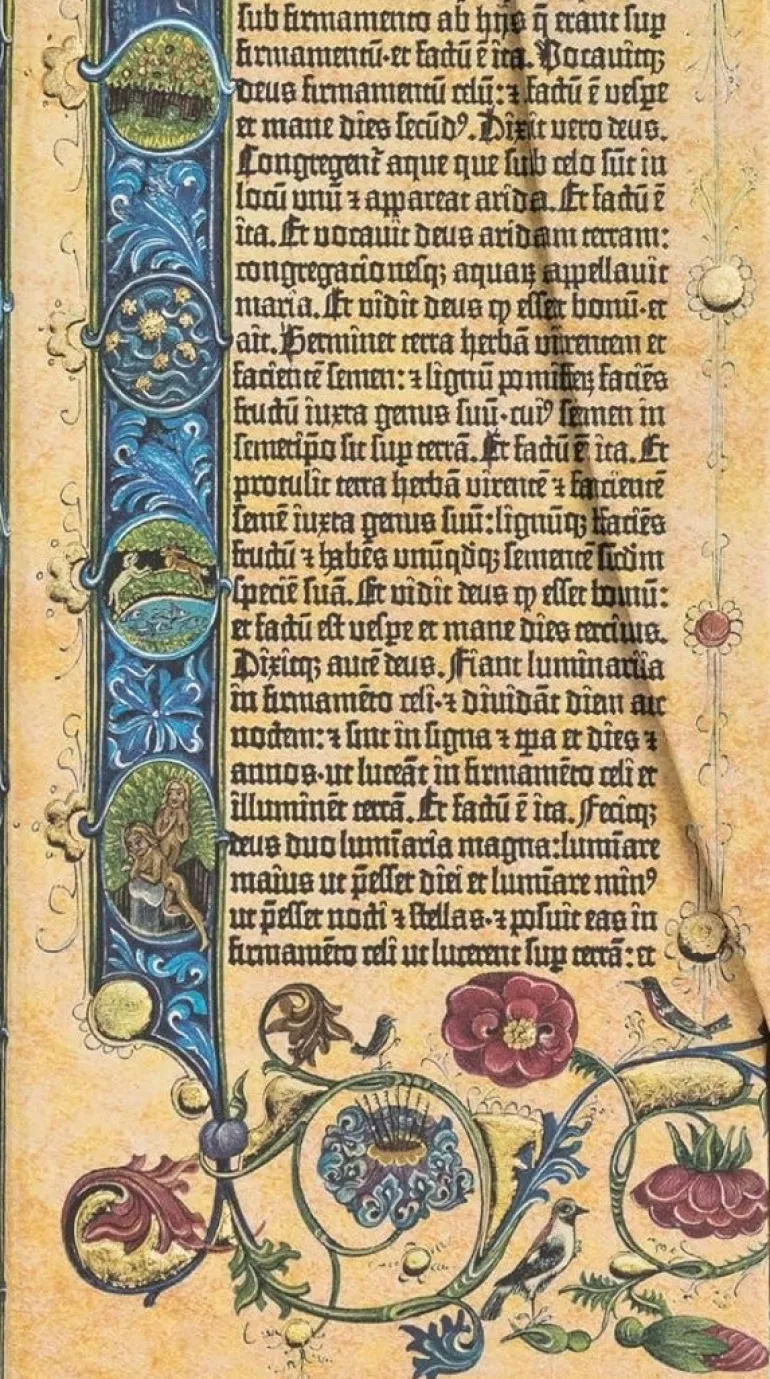 sub firmamento ab hijs q̄ erant suꝑ
firmamentū·et factū ē ita. Vocauitqꝫ
deus firmamentū celū: ⁊ factū ē vespe
et mane dies secūdꝰ. Dixit vero deus.
Congregent᷑ aque que sub celo sūt in
locū vnū ⁊ appareat arida. Et factū ē
ita. Et vocauit deus aridam terram:
congregacionesqꝫ aquaꝝ appellauit
maria. Et vidit deus ꝙ esset bonū·et
ait. Germinet terra herbā virentem et
facientē semen: ⁊ lignū pomiferꝫ faciēs
fructū iuxta genus suū·cuiꝰ semen in
semetip̄o sit suꝑ terrā. Et factū ē ita. Et
protulit terra herbā virentē ⁊ facientē
semē iuxta genus suū:lignūqꝫ faciēs
fructū ⁊ habēs vnūqdqꝫ sementē scdm
speciē suā. Et vidit deus ꝙ esset bonū:
et factū est vespe et mane dies tercius.
Dixitqꝫ autē deus. Fiant luminaria
in firmamēto celi·⁊ diuidāt diem ac
noctem: ⁊ sint in signa ⁊ tp̄a et dies ⁊
annos·ut luceāt in firmamēto celi et
illuminēt terrā. Et factū ē ita. Fecitqꝫ
deus duo lumīaria magna:lumīare
maius ut p̄esset diei et lumīare minꝰ
ut p̄esset nocti ⁊ stellas·⁊ posuit eas in
firmamēto celi ut lucerent suꝑ terrā: et